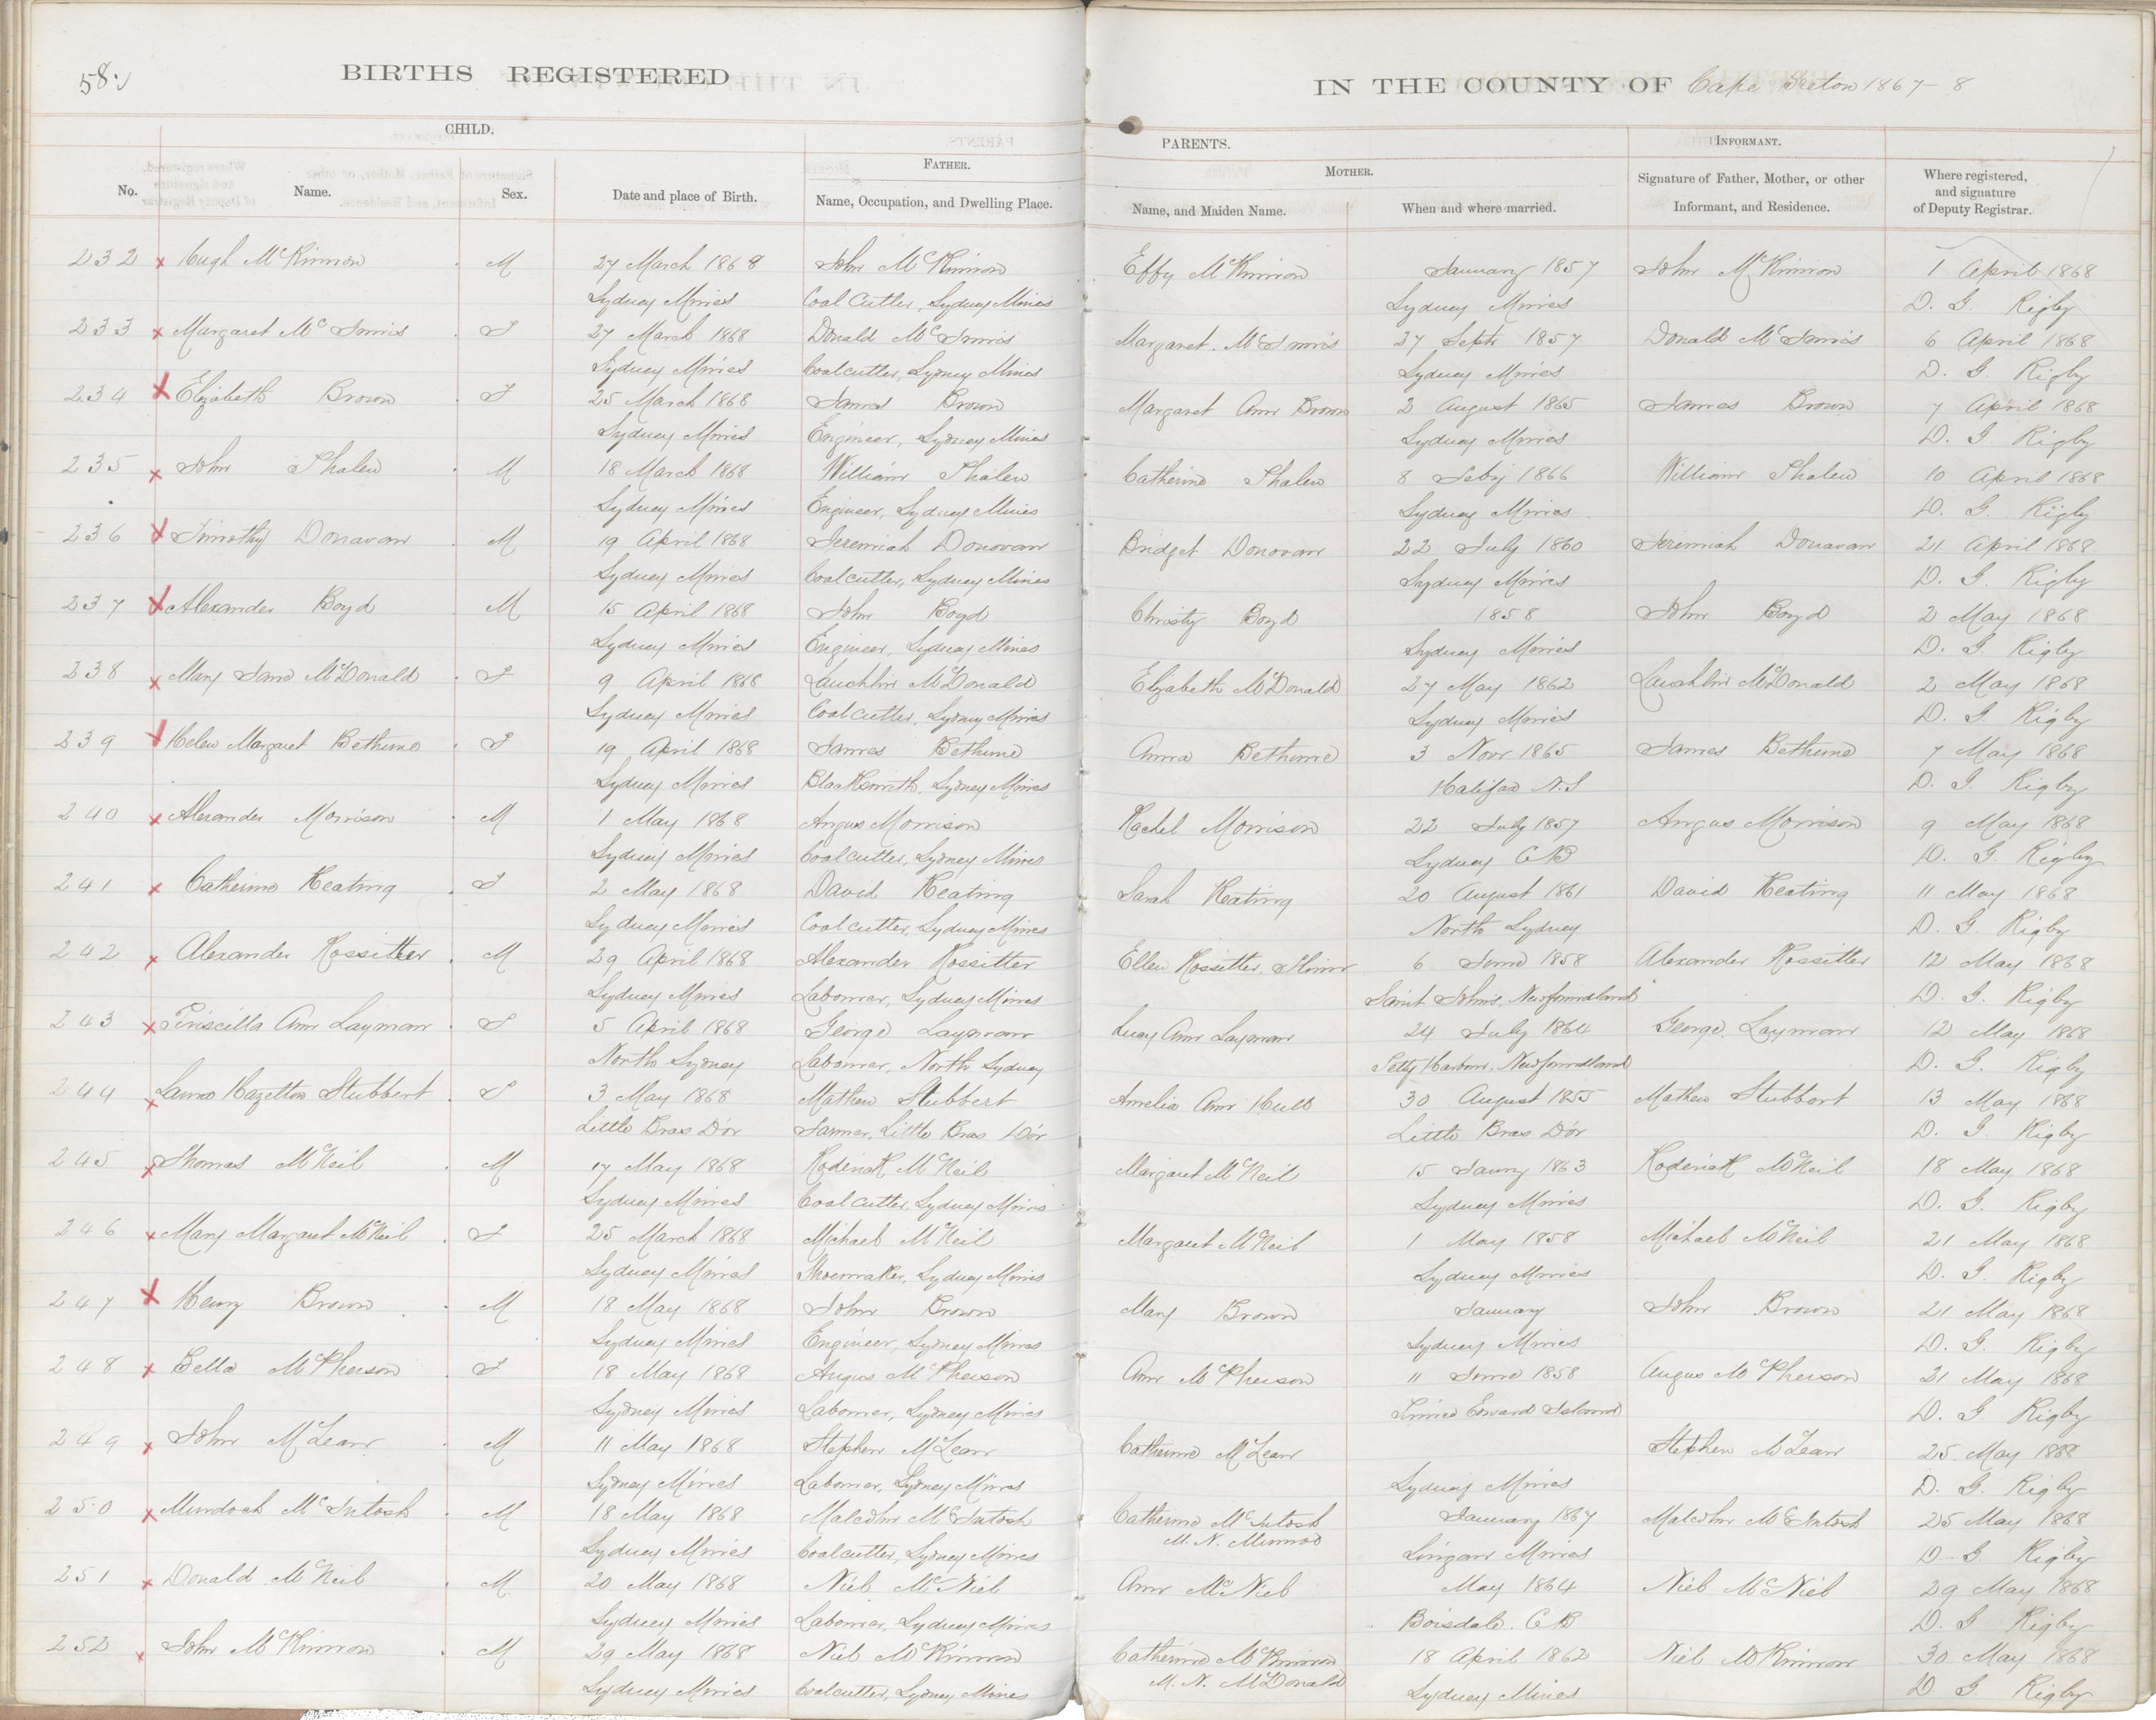 58
BIRTHS REGISTERED
IN THE COUNTY OF Cape Breton 1867-8
CHILD.
PARENTS.
INFORMANT.
No.
Name.
Sex.
Date and place of Birth.
FATHER.
Name, Occupation, and Dwelling Place.
MOTHER.
Name, and Maiden Name.
When and where married.
Signature of Father, Mother, or other
Informant, and Residence.
Where registered,
and signature
of Deputy Registrar.
232 x Hugh McKinnon M 27 March 1868 John McKinnon Effy McKinnon January 1857 John McKinnon 1 April 1868
Sydney Mines Coal Cutter, Sydney Mines Sydney Mines D. G. Rigby
233 x Margaret McInnis F 27 March 1868 Donald McInnis Margaret McInnis 27 Sept 1857 Donald McInnis 6 April 1868
Sydney Mines Coalcutter, Sydney Mines Sydney Mines D. G. Rigby
234 x Elizabeth Brown F 25 March 1868 James Brown Margaret Ann Brown 2 August 1865 James Brown 7 April 1868
Sydney Mines Engineer, Sydney Mines Sydney Mines D. G. Rigby
235 x John Phalen M 18 March 1868 William Phalen Catherine Phalen 8 Feby 1866 William Phalen 10 April 1868
Sydney Mines Engineer, Sydney Mines Sydney Mines D. G. Rigby
236 x Timothy Donavan M 19 April 1868 Jeremiah Donovan Bridget Donovan 22 July 1860 Jeremiah Donavan 21 April 1868
Sydney Mines Coalcutter, Sydney Mines Sydney Mines D. G. Rigby
237 x Alexander Boyd M 15 April 1868 John Boyd Christy Boyd 1858 John Boyd 2 May 1868
Sydney Mines Engineer, Sydney Mines Sydney Mines D. G. Rigby
238 x Mary Jane McDonald F 9 April 1868 Lauchlin McDonald Elizabeth McDonald 27 May 1862 Lauchlin McDonald 2 May 1868
Sydney Mines Coalcutter, Sydney Mines Sydney Mines D. G. Rigby
239 x Helen Margaret Bethune F 19 April 1868 James Bethune Anna Bethune 3 Novr 1865 James Bethune 7 May 1868
Sydney Mines Blacksmith, Sydney Mines Halifax N.S D. G. Rigby
240 x Alexander Morrison M 1 May 1868 Angus Morrison Rachel Morrison 22 July 1857 Angus Morrison 9 May 1868
Sydney Mines Coalcutter, Sydney Mines Sydney CB D. G. Rigby
241 x Catherine Keating F 2 May 1868 David Keating Sarah Keating 20 August 1861 David Keating 11 May 1868
Sydney Mines Coal cutter, Sydney Mines North Sydney D. G. Rigby
242 x Alexander Rossitter M 29 April 1868 Alexander Rossitter Ellen Rossitter, 6 June 1858 Alexander Rossitter 12 May 1868
Sydney Mines Laborer, Sydney Mines Saint Johns, Newfoundland D. G. Rigby
243 x Priscilla Ann Layman F 5 April 1868 George Layman Lucy Ann Layman 24 July 1864 George Layman 12 May 1868
North Sydney Laborer, North Sydney Petty Harbour, Newfoundland D. G. Rigby
244 x Hazelton Stubbert F 3 May 1868 Mathew Stubbert Amelia Ann 30 August 1855 Mathew Stubbert 13 May 1868
Little Bras D'or Farmer, Little Bras D'or Little Bras D'or D. G. Rigby
245 x Thomas McNeil M 17 May 1868 Roderick McNeil Margaret McNeil 15 Jany 1863 Roderick McNeil 18 May 1868
Sydney Mines Coal cutter, Sydney Mines Sydney Mines D. G. Rigby
246 x Mary Margaret McNeil F 25 March 1868 Michael McNeil Margaret McNeil 1 May 1858 Michael McNeil 21 May 1868
Sydney Mines Shoemaker, Sydney Mines Sydney Mines D. G. Rigby
247 x Henry Brown M 18 May 1868 John Brown Mary Brown January John Brown 21 May 1868
Sydney Mines Engineer, Sydney Mines Sydney Mines D. G. Rigby
248 x Bella McPherson F 18 May 1868 Angus McPherson Ann McPherson 11 June 1858 Angus McPherson 21 May 1868
Sydney Mines Laborer, Sydney Mines Prince Edward Island D. G. Rigby
249 x John McLean M 11 May 1868 Stephen McLean Catherine McLean Stephen McLean 25 May 1868
Sydney Mines Laborer, Sydney Mines Sydney Mines D. G. Rigby
250 x Murdoch McIntosh M 18 May 1868 Malcolm McIntosh Catherine McIntosh January 1867 Malcolm McIntosh 25 May 1868
M. N. Munroe
Sydney Mines Coalcutter, Sydney Mines Lingan Mines D. G. Rigby
251 x Donald McNeil M 20 May 1868 Niel McNiel Ann McNiel May 1864 Niel McNiel 29 May 1868
Sydney Mines Laborer, Sydney Mines Boisdale. CB D. G. Rigby
252 x John McKinnon M 29 May 1868 Niel McKinnon Catherine McKinnon 18 April 1862 Niel McKinnon 30 May 1868
M. N. McDonald
Sydney Mines Coalcutter, Sydney Mines Sydney Mines D. G. Rigby